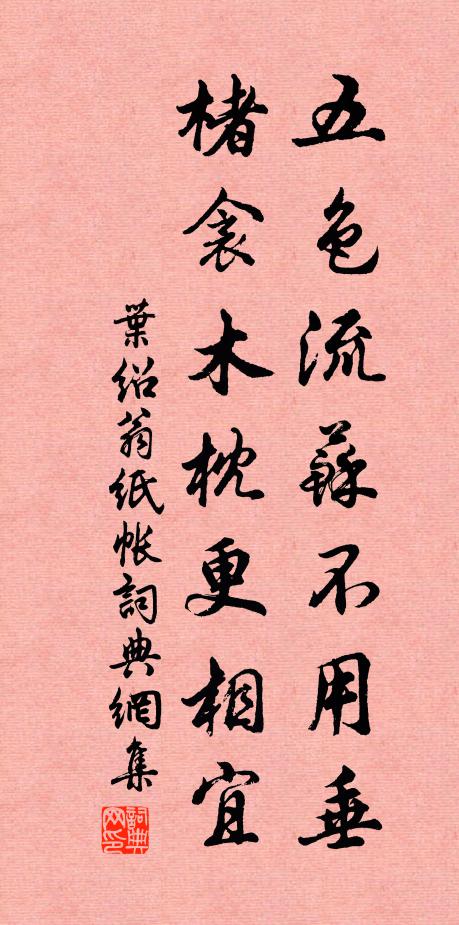 五色流蘇不用垂
楮衾木枕更相宜
葉紹翁紙帳詞典網集
詞典网印